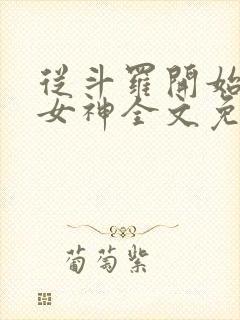 從斗羅開始
女神全文免
葡萄紫